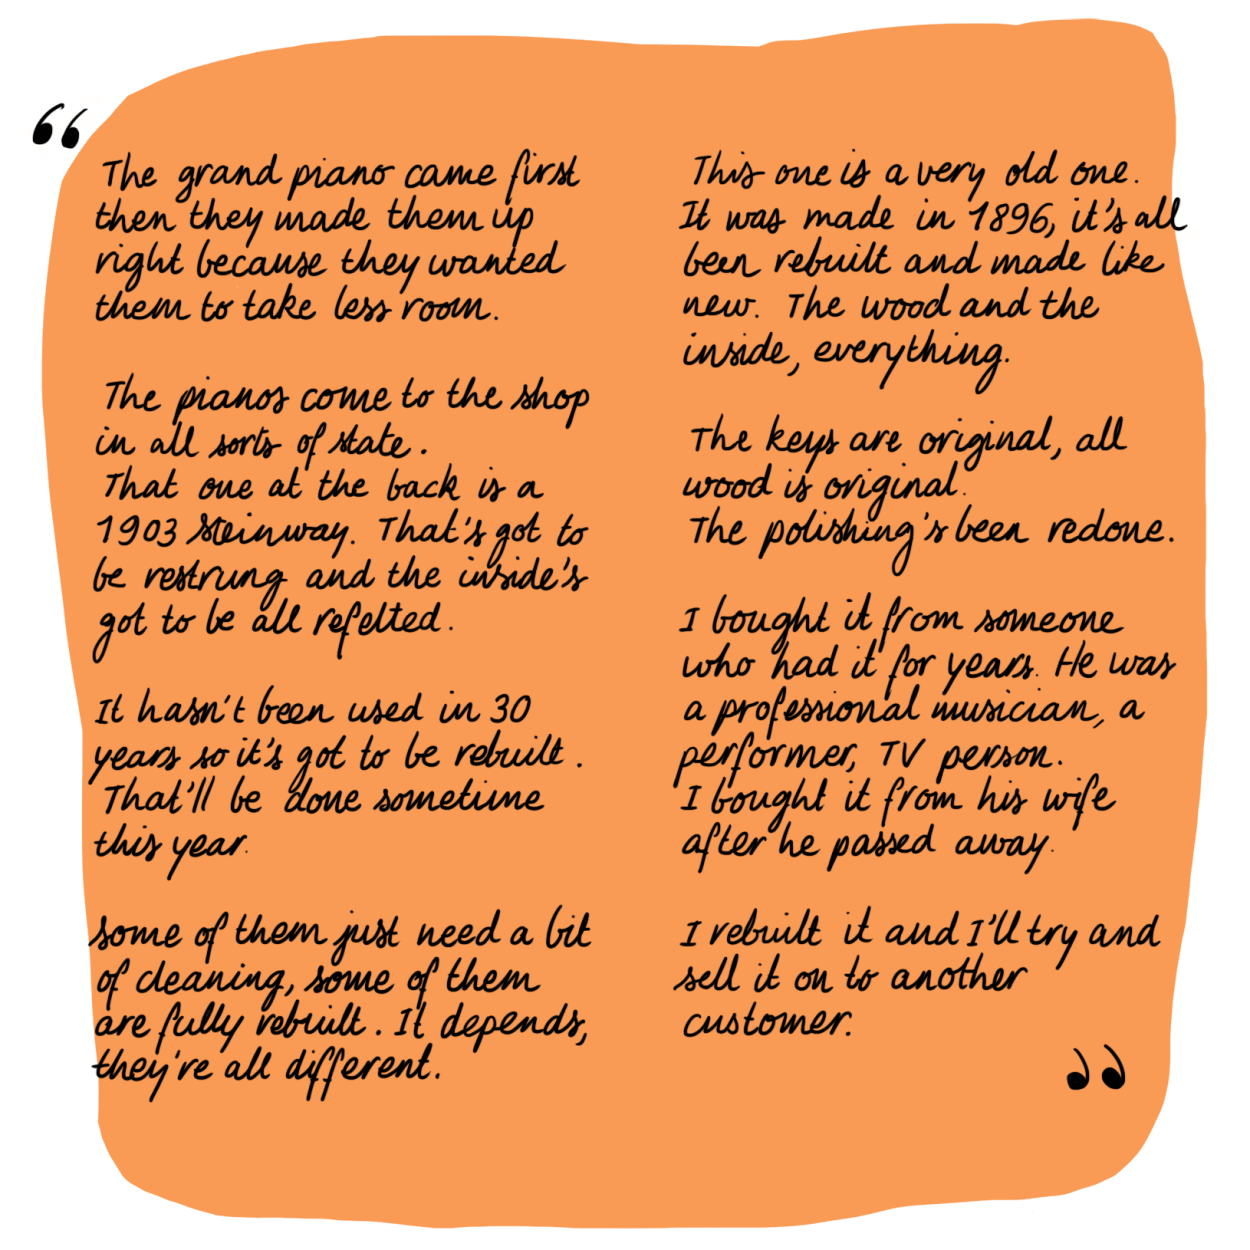 “
The grand piano came first
then they made them up
right because they wanted
them to take less room.
The pianos come to the shop
in all sorts of state.
That one at the back is a
1903 Steinway. That's got to
be restrung and the inside's
got to be all refelted.
It hasn't been used in 30
years so it's got to be rebuilt.
That'll be done sometime
this year.
Some of them just need a bit
of cleaning, some of them
are fully rebuilt. It depends,
they're all different.
This one is a very old one.
It was made in 1896, it's all
been rebuilt and made like
new. The wood and the
inside, everything.
The keys are original, all
wood is original.
The polishing's been redone.
I bought it from someone
who had it for years. He was
a professional musician, a
performer, TV person.
I bought it from his wife
after he passed away.
I rebuilt it and I'll try and
sell it on to another
customer.
”